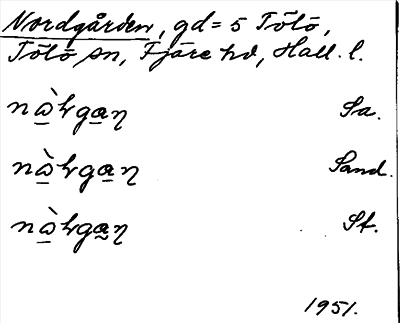 Nordgården, gd = 5 Tölö,
Tölö sn, Fjäre hd, Hall. l.
nὼƚgaƞ Sa.
nὼƚgaƞ Sand.
nὼƚgaƞ St.
1951.